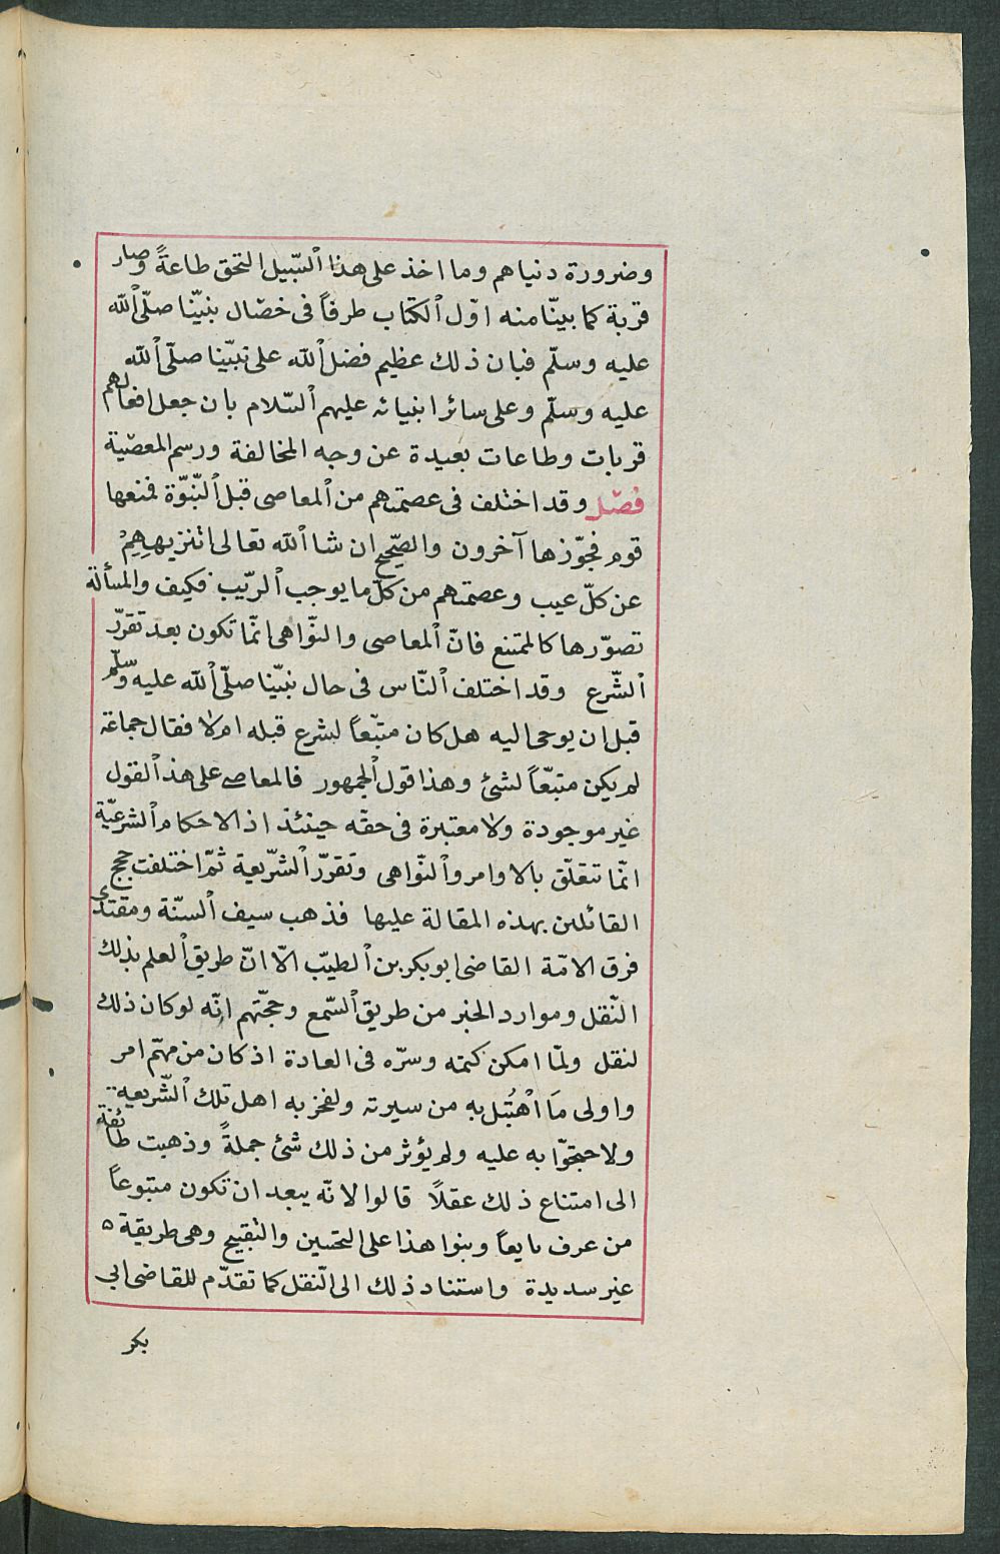 وضرورة دنياهم وما اخذ على هذا السّبيل التحق طاعةً وصار
قربة كما بينّا منه اوّل الكتاب طرفاً فى خصال نبيّنا صلّى الله
عليه وسلّم فبان ذلك عظيم فضل الله على نبيّنا صلّى الله
عليه وسلّم وعلى سائر انبيائه عليهم السّلام بان جعل افعالهم
قربات وطاعات بعيدة عن وجه المخالفة ورسم المعصية
فصل وقد اختلف فى عصمتهم من المعاصى قبل النّبوّة فمنعها
قوم فجوّزها آخرون والصّحيح ان شا الله تعالى تنزيههِمْ
عن كلّ عيب وعصمتهم من كلّ ما يوجب الرّيب فكيف والمسألة
تصوّرها كالممتنع فانّ المعاصى والنّواهى انّما تكون بعد تقرّر
الشّرع وقد اختلف النّاس فى حال نبيّنا صلّى الله عليه وسلّم
قبل ان يوحى اليه هل كان متبّعاً لشرع قبله ام لا فقال جماعة
لم يكن متبّعاً لشئ وهذا قول الجمهور فالمعاصے على هذ القول
غير موجودة ولا معتبرة فى حقّه حينئذ اذ الاحكام الشرعيّة
انّما تتعلّق بالاوامر والنّواهى وتقرّر الشّريعة ثمّ اختلفت حجج
القائلين بهذه المقالة عليها فذهب سيف السنّة ومقتدى
فرق الامّة القاضى ابوبكر بن الطيّب الّا انّ طريق العلم بذلك
النّقل وموارد الخبر من طريق السّمع وحجّتهم انّه لو كان ذلك
لنقل ولمّا امكن كتمه وسرّه فى العادة اذ كان من مهمّ امر
واولى مَا اهْتُبل به من سيرته ولفخر به اهل تلك الشّريعة
ولاحتجّوا به عليه ولم يؤثر من ذلك شئ جملةً وذهبت طائفة
الى امتناع ذلك عقلاً قالوا لانّه يبعد ان تكون متبوعاً
من عرف تايعاً وبنوا هذا على التحسين والتقبيح وهى طريقة ٥
غير سديدة واستناد ذلك الى النّقل كما تقدّم للقاضى ابى
بكر